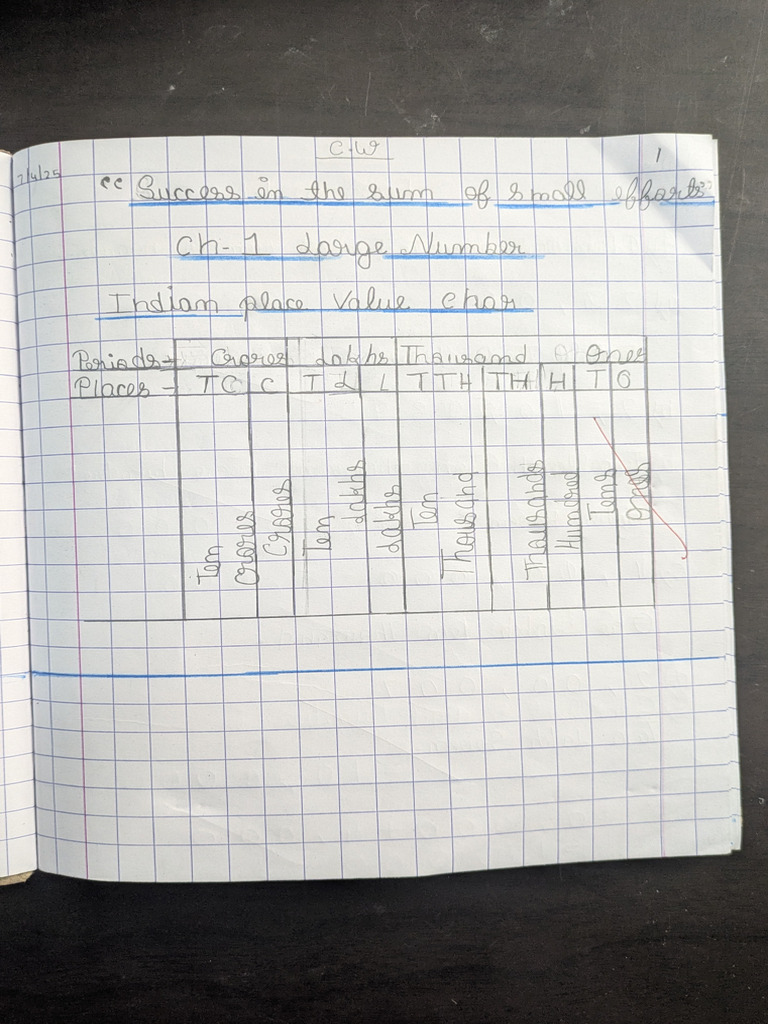 C.W
1
7/4/25
"Success in the sum of small efforts"
Ch-1 Large Number
Indian place value char
Periods → Crores Lakhs Thousand Ones
Places → T C C T L L T TH TH H T O
Ten Crores Crores Ten Lakhs Lakhs Ten Thousand Thousands Hundred Tens Ones